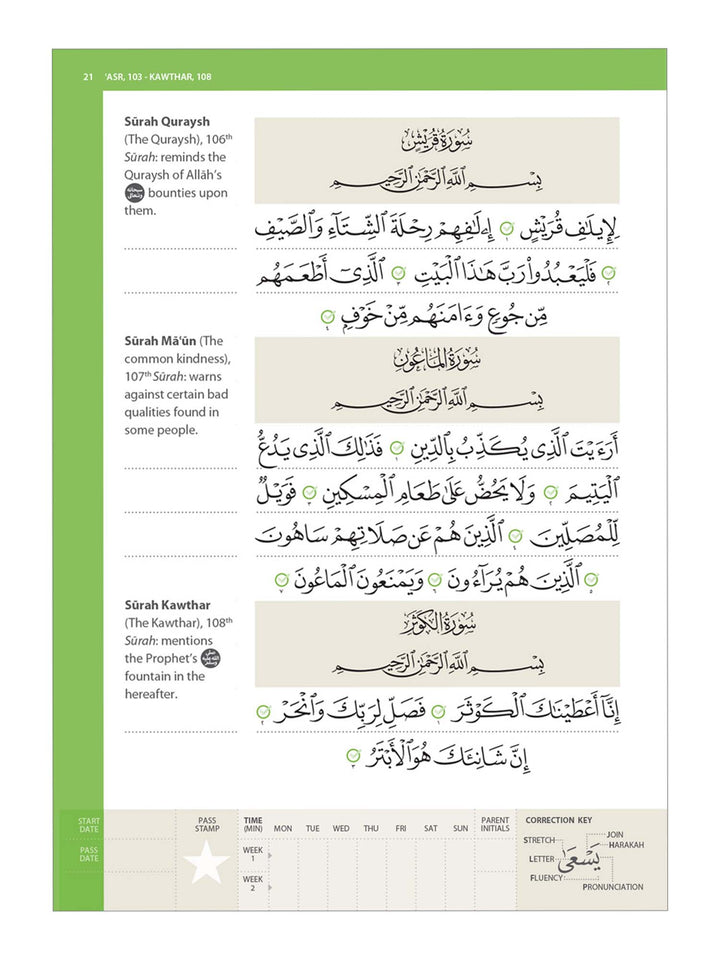 21 'ASR, 103 - KAWTHAR, 108
Sūrah Quraysh
(The Quraysh), 106th
Sūrah: reminds the
Quraysh of Allāh's
سبحانه وتعالى bounties upon
them.
سُورَةُ قُرَيْشٍ
بِسْمِ ٱللَّهِ ٱلرَّحْمَٰنِ ٱلرَّحِيمِ
لِإِيلَٰفِ قُرَيْشٍ ١ إِۦلَٰفِهِمْ رِحْلَةَ ٱلشِّتَآءِ وَٱلصَّيْفِ
٢ فَلْيَعْبُدُوا۟ رَبَّ هَٰذَا ٱلْبَيْتِ ٣ ٱلَّذِىٓ أَطْعَمَهُم
مِّن جُوعٍ وَءَامَنَهُم مِّنْ خَوْفٍۭ ٤
Sūrah Mā'ūn (The
common kindness),
107th Sūrah: warns
against certain bad
qualities found in
some people.
سُورَةُ المَاعُونِ
بِسْمِ ٱللَّهِ ٱلرَّحْمَٰنِ ٱلرَّحِيمِ
أَرَءَيْتَ ٱلَّذِى يُكَذِّبُ بِٱلدِّينِ ١ فَذَٰلِكَ ٱلَّذِى يَدُعُّ
ٱلْيَتِيمَ ٢ وَلَا يَحُضُّ عَلَىٰ طَعَامِ ٱلْمِسْكِينِ ٣ فَوَيْلٌ
لِّلْمُصَلِّينَ ٤ ٱلَّذِينَ هُمْ عَن صَلَاتِهِمْ سَاهُونَ
٥ ٱلَّذِينَ هُمْ يُرَآءُونَ ٦ وَيَمْنَعُونَ ٱلْمَاعُونَ ٧
Sūrah Kawthar
(The Kawthar), 108th
Sūrah: mentions
the Prophet's صلى الله عليه وسلم
fountain in the
hereafter.
سُورَةُ الكَوْثَرِ
بِسْمِ ٱللَّهِ ٱلرَّحْمَٰنِ ٱلرَّحِيمِ
إِنَّآ أَعْطَيْنَٰكَ ٱلْكَوْثَرَ ١ فَصَلِّ لِرَبِّكَ وَٱنْحَرْ ٢
إِنَّ شَانِئَكَ هُوَ ٱلْأَبْتَرُ ٣
START DATE
PASS DATE
PASS STAMP
TIME (MIN) MON TUE WED THU FRI SAT SUN PARENT INITIALS
WEEK 1
WEEK 2
CORRECTION KEY
STRETCH
JOIN
HARAKAH
LETTER
يَسْعَىٰ
FLUENCY
PRONUNCIATION